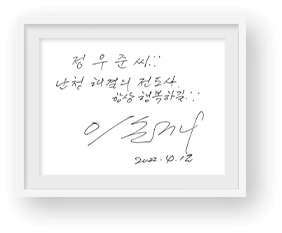 정 우 준 씨!!
난청 해결의 전도사.
항상 행복하길!!
2022. 4. 12